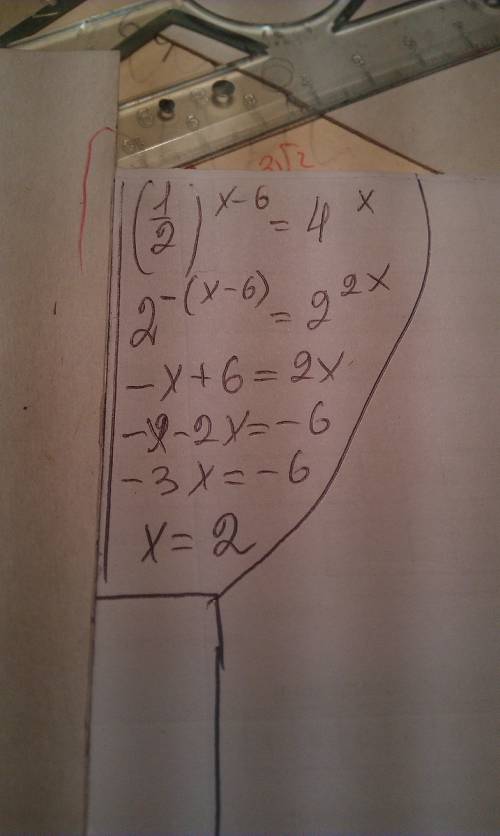 3√2
(1/2)^(x-6) = 4^x
2^(-(x-6)) = 2^(2x)
-x+6=2x
-x-2x=-6
-3x=-6
x=2